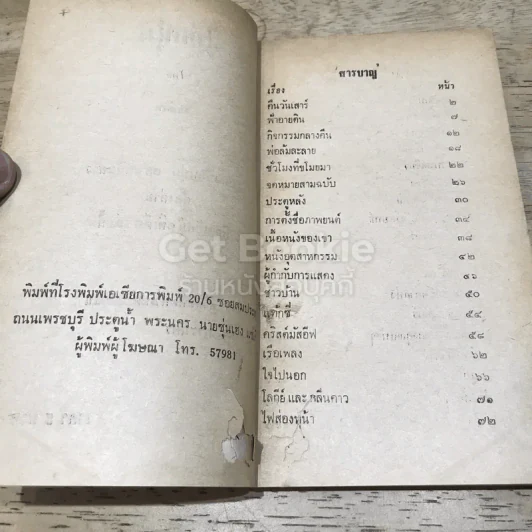 พิมพ์ที่โรงพิมพ์เอเซียการพิมพ์ 20/6 ซอยสมประ
ถนนเพรชบุรี ประตูน้ำ พระนคร นายชุ่นเฮง
ผู้พิมพ์ผู้โฆษณา โทร. 57981
สารบาญ
เรื่อง หน้า
คืนวันเสาร์ ๒
ฟ้าอายดิน ๗
กิจกรรมกลางคืน ๑๒
พ่อล้มละลาย ๑๘
ชั่วโมงที่ขโมยมา ๒๒
จดหมายสามฉบับ ๒๖
ประตูหลัง ๓๐
การตั้งชื่อภาพยนต์ ๓๔
เนื้อหนังของเขา ๓๘
หนังอุตสาหกรรม ๔๒
ผู้กำกับการแสดง ๔๖
ชาวบ้าน ๕๐
แท็กซี่ ๕๔
คริสต์มัสอีฟ ๕๘
เรือเพลง ๖๒
ใจไปนอก ๖๖
โลกีย์ และ กลิ่นคาว ๗๑
ไฟส่องหน้า ๗๒
Get Bookie
ร้านหนังสือบุคกี้